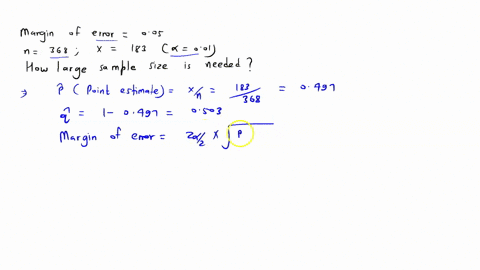 Margin of error = 0.05
n = 368 ; x = 183 (α = 0.01)
How large sample size is needed ?
⇒ p̂ (Point estimate) = x/n = 183/368 = 0.497
q̂ = 1 - 0.497 = 0.503
Margin of error = Zα/2 × √p